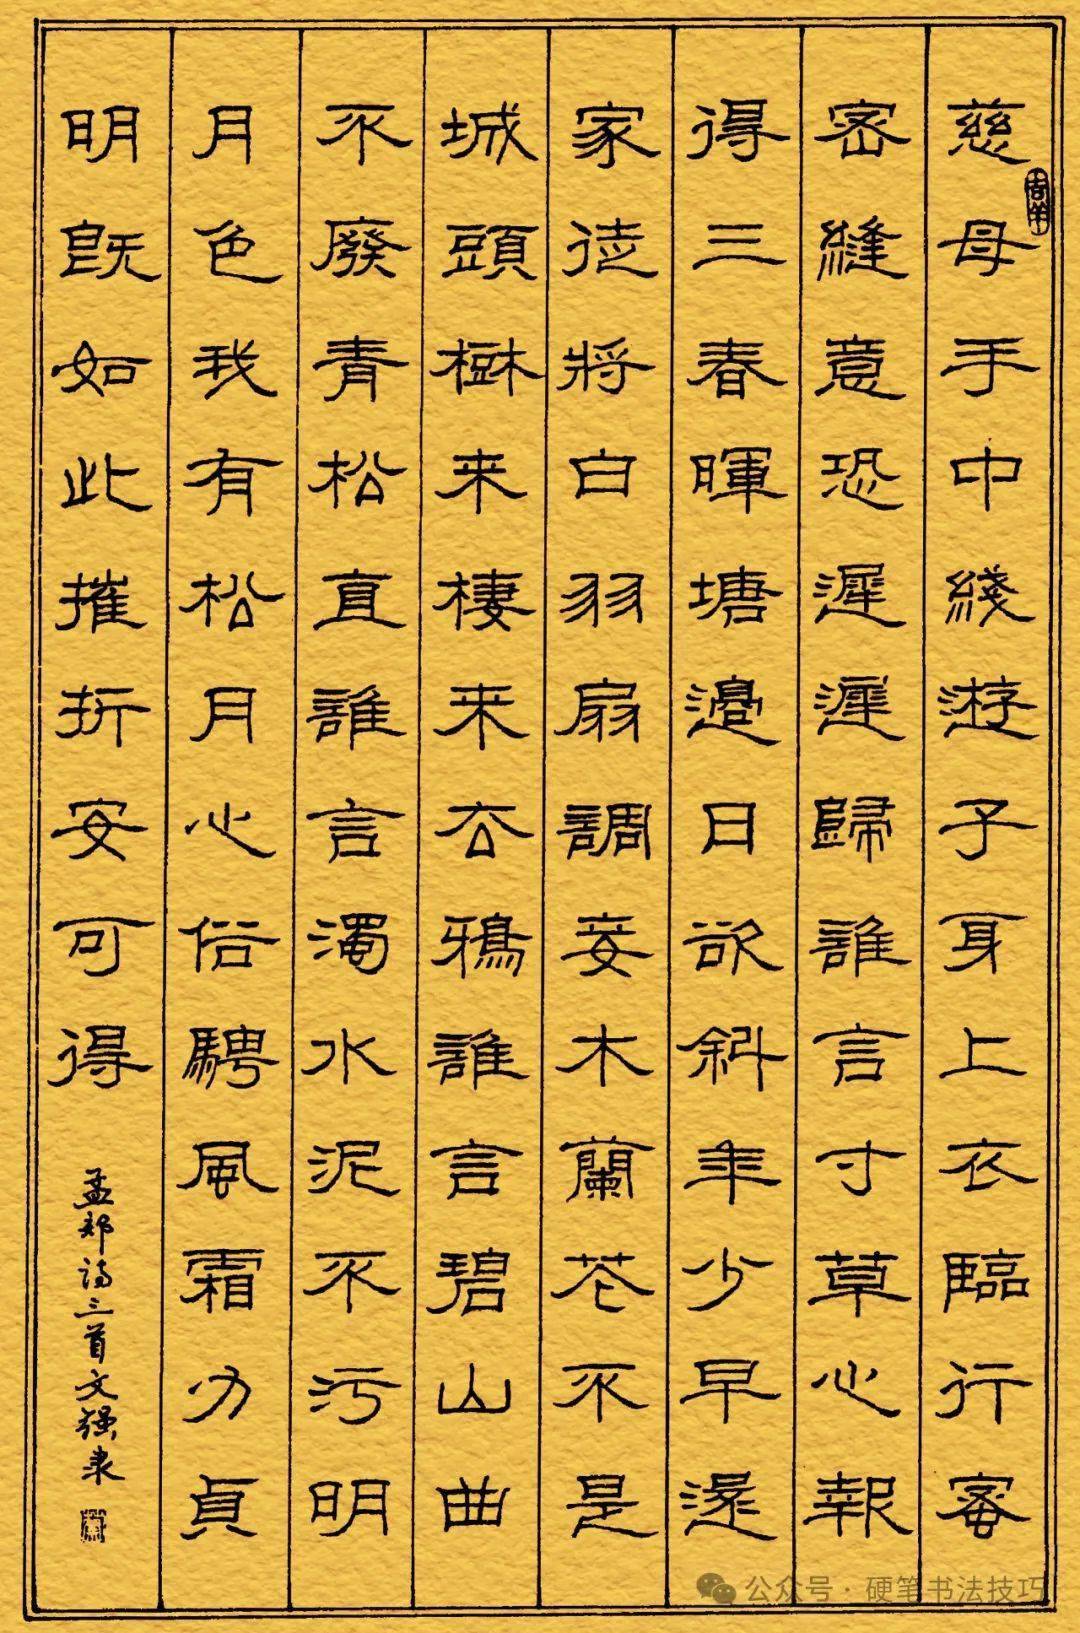 慈母手中綫遊子身上衣臨行蜜
密縫意恐遲遲歸誰言寸草心報
得三春暉塘邊日欲斜年少早還
家徒將白羽扇調妾木蘭花不是
城頭樹来棲来去鴉誰言碧山曲
不廢青松直誰言濁水泥不污明
月色我有松月心俗騁風霜力貞
明既如此摧折安可得
孟郊诗三首文强隶
公众号·硬笔书法技巧